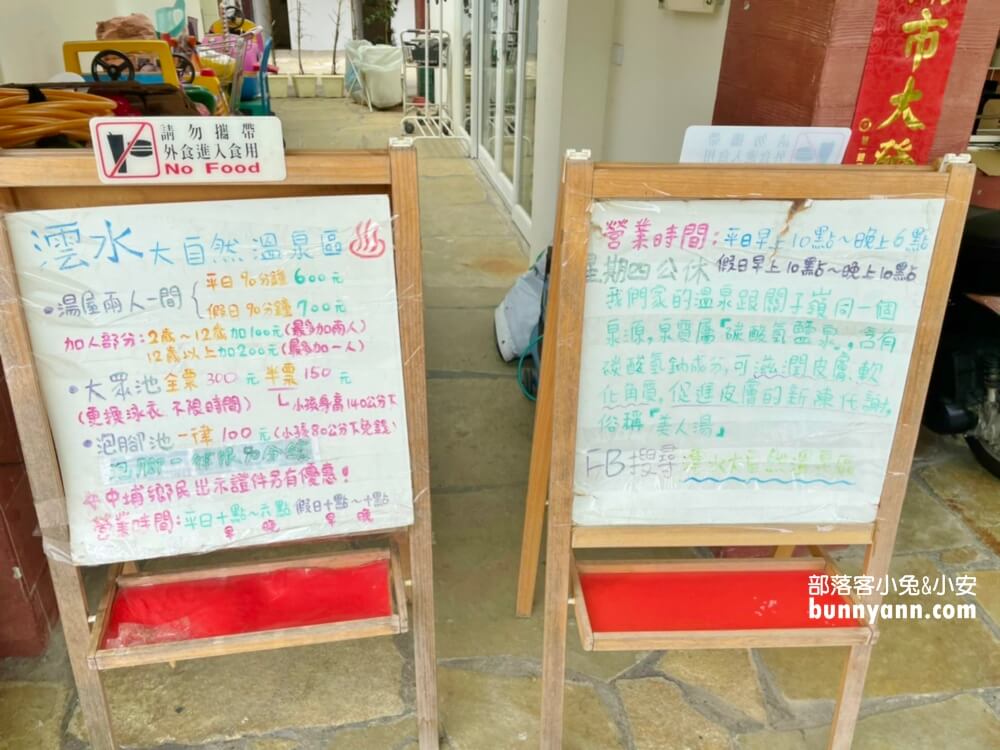 請勿攜帶
外食進入食用
No Food
澐水大自然溫泉區
•湯屋兩人一間{平日90分鐘600元
假日90分鐘700元
加人部分:2歲~12歲加100元(最多加兩人)
12歲以上加200元(最多加一人)
•大眾池全票300元半票150元
(更換泳衣 不限時間) 小孩身高140公分下
•泡腳池一律100元(小孩80公分下免錢)
中埔鄉民出示證件另有優惠!
營業時間:平日十點~六點 假日十點~十點
早 晚 早 晚
營業時間:平日早上10點~晚上6點
星期四公休 假日早上10點~晚上10點
我們家的溫泉跟關子嶺同一個
泉源,泉質屬「碳酸氫鹽泉」,含有
碳酸氫鈉成分,可滋潤皮膚,軟
化角質,促進皮膚的新陳代謝,
俗稱「美人湯」
FB搜尋 澐水大自然溫泉區
市大發
部落客小兔&小安
bunnyann.com